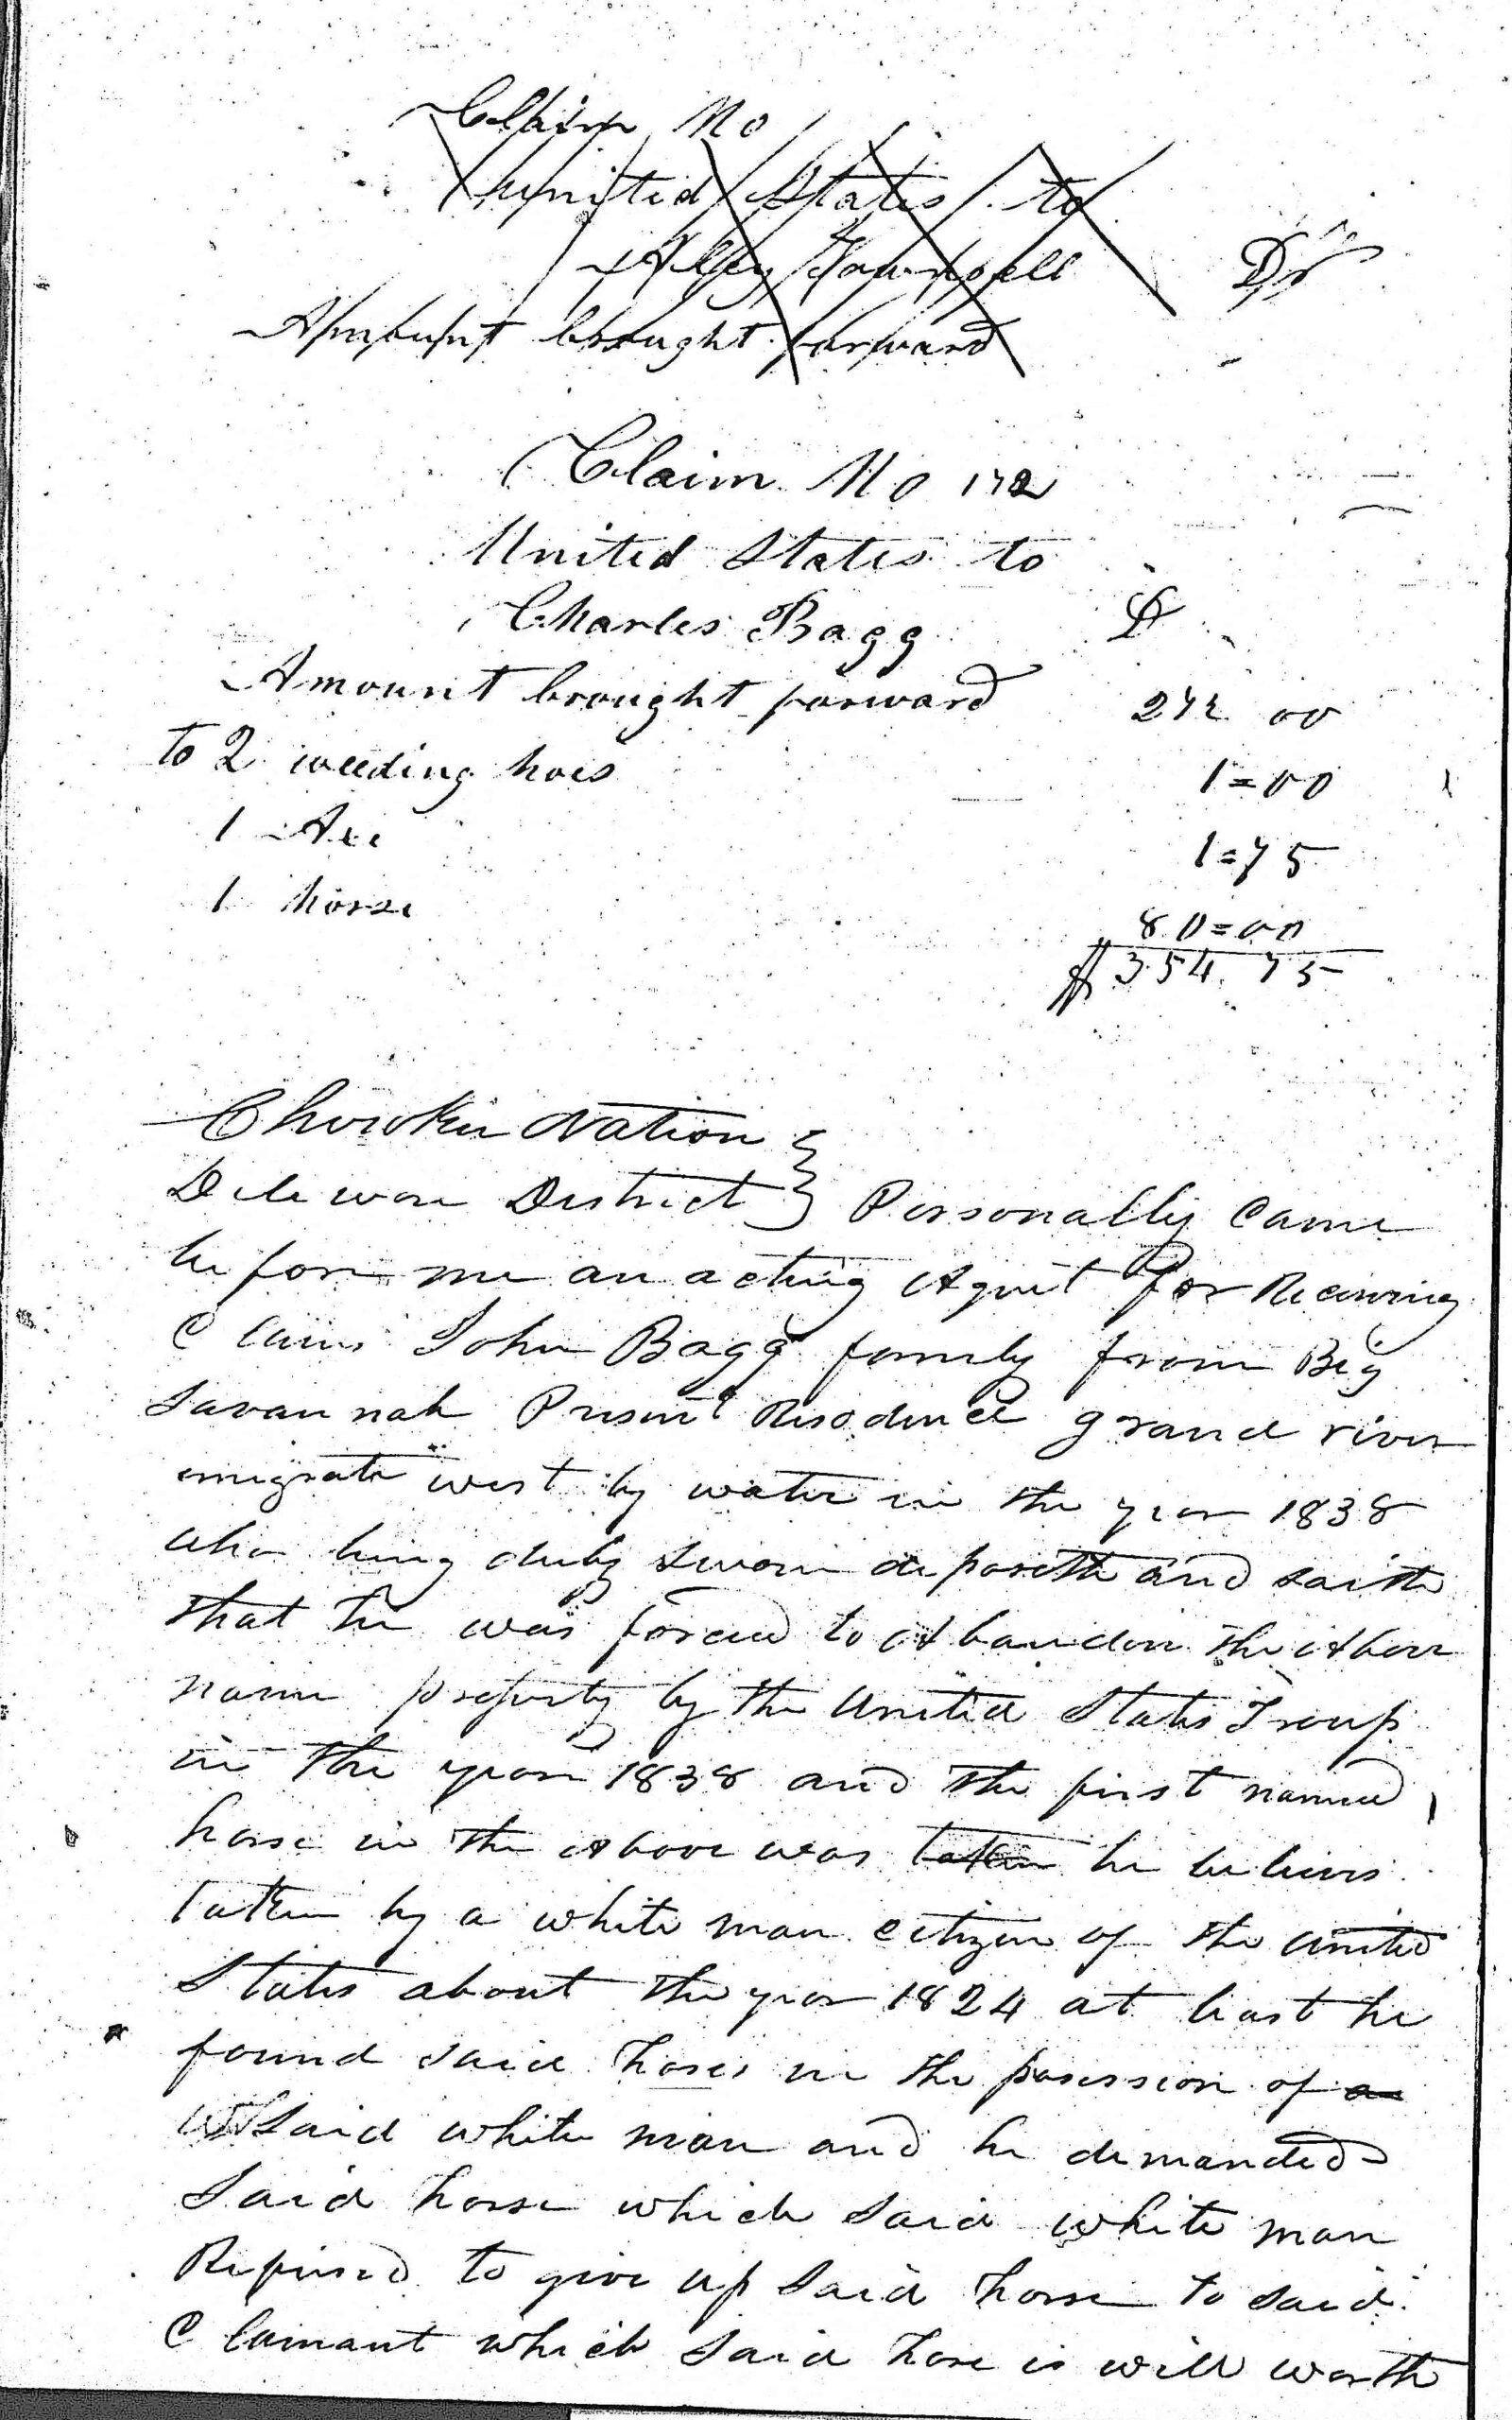 Claim No
United States to
Alley Dr
Amount brought forward
Claim No 172
United States to
Charles Bagg D
Amount brought forward 272 00
to 2 weeding hoes 1=00
1 Axe 1=75
1 horse 80=00
$354.75
Cherokee Nation
Deleware District } Personally Came
before me an acting Agent for Receiving
Claims John Bagg family from Big
Savannah Present Residence grand river
emigrate west by water in the year 1838
who being duly sworn deposeth and saith
that he was forced to Abandon the Above
name property by the United States Troup
in the year 1838 and the first named
horse in the Above was taken he believs
taken by a white man citizen of the united
States about the year 1824 at least he
found said horse in the posession of a
said white man and he demanded
Said horse which Said white man
Refused to give up Said horse to said
Clamant which Said hose is well worth